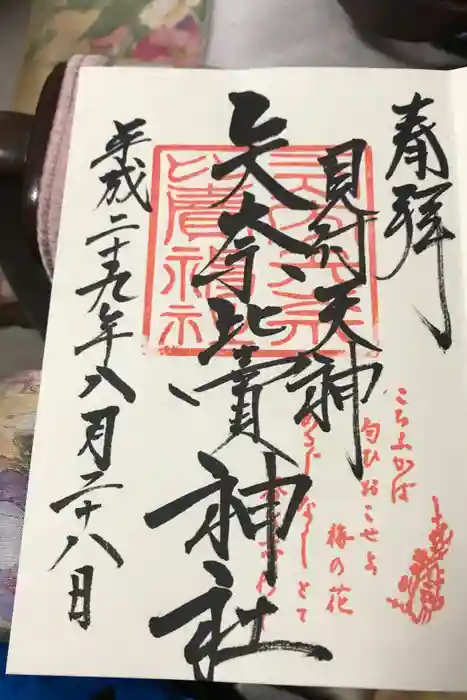 奉拝
見付天神
矢奈比賣神社
平成二十九年八月二十八日
矢奈
比賣神社
こちふかば
匂ひおこせよ
梅の花
あるじなしとて